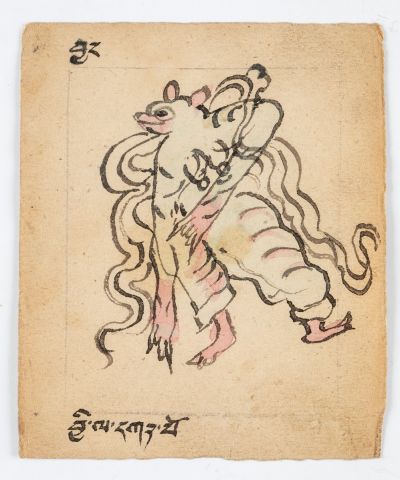 བྱང
བྱི་ལ་དཀར་པོ